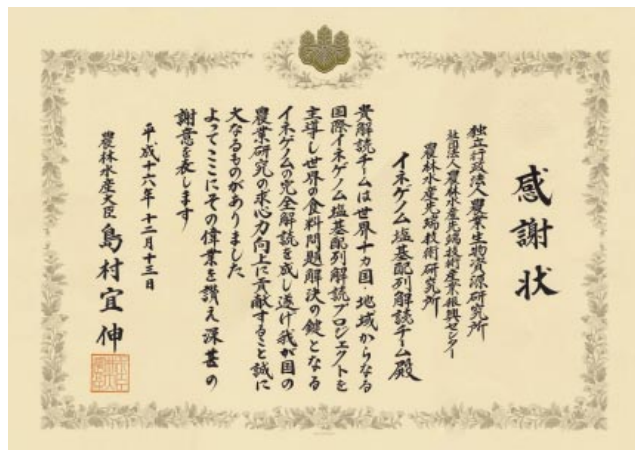 感謝状
独立行政法人農業生物資源研究所
社団法人農林水産先端技術産業振興センター
農林水産先端技術研究所
イネゲノム塩基配列解読チーム殿
貴解読チームは世界十カ国・地域からなる
国際イネゲノム塩基配列解読プロジェクトを
主導し世界の食料問題解決の鍵となる
イネゲノムの完全解読を成し遂げ我が国の
農業研究の求心力向上に貢献すること誠に
大なるものがありました
よってここにその偉業を讃え深甚の
謝意を表します
平成十六年十二月十三日
農林水産大臣 島村宜伸